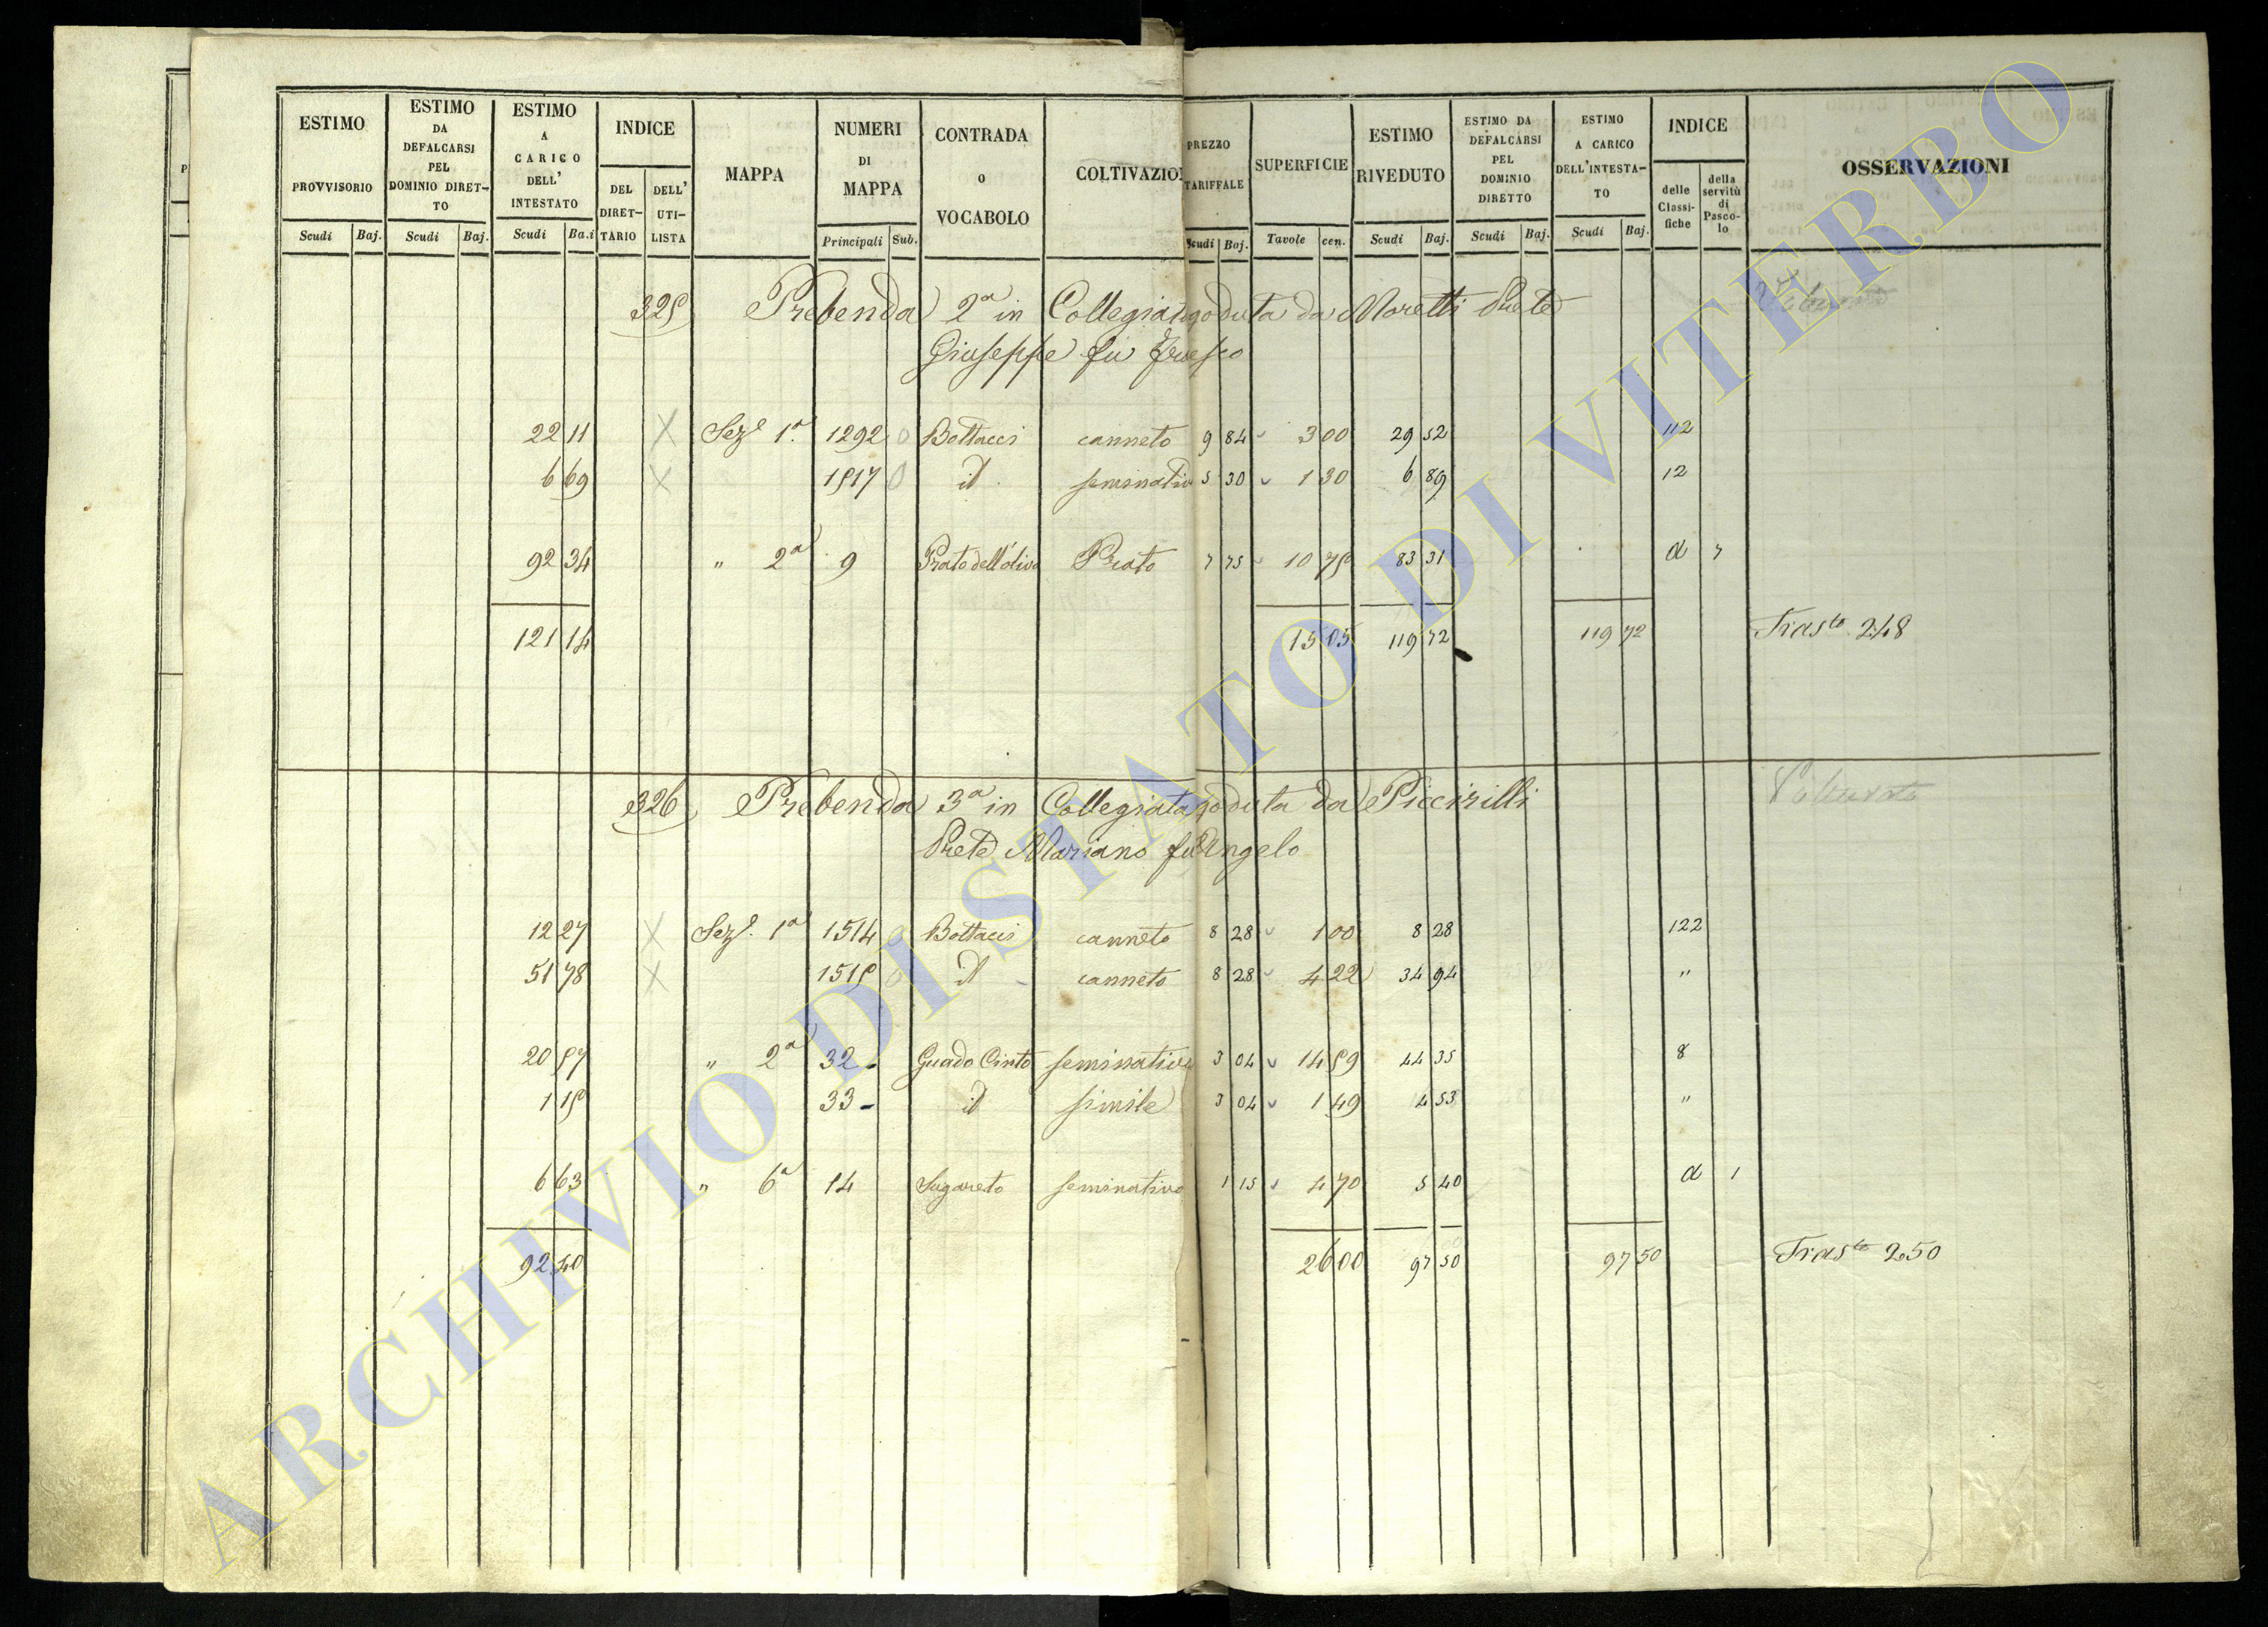 ESTIMO PROVVISORIO Scudi Baj.
ESTIMO DA DEFALCARSI PEL DOMINIO DIRET-TO Scudi Baj.
ESTIMO A CARICO DELL' INTESTATO Scudi Ba.i
INDICE DEL DIRET-TARIO DELL' UTI-LISTA
MAPPA
NUMERI DI MAPPA Principali Sub.
CONTRADA O VOCABOLO
COLTIVAZIO
PREZZO TARIFFALE Scudi Baj.
SUPERFICIE Tavole cen.
ESTIMO RIVEDUTO Scudi Baj.
ESTIMO DA DEFALCARSI PEL DOMINIO DIRETTO Scudi Baj.
ESTIMO A CARICO DELL'INTESTA-TO Scudi Baj.
INDICE delle Classi-fiche della servitù di Pasco-lo
OSSERVAZIONI
325 Prebenda 2a in Collegiata goduta da Moretti Prete
Giuseppe fu
22 11 X Sez.e 1a 1292 0 Bottacci canneto 9 84 3 00 29 52 112
6 69 X 1517 0 id seminativo 5 30 1 30 6 89 12
92 34 " 2a 9 Prato dell'olivo Prato 7 75 10 75 83 31 d 7
121 14 15 05 119 72 119 72 Trasto 248
326 Prebenda 3a in Collegiata goduta da Piccirilli
Prete Mariano fu Angelo
12 27 X Sez.e 1a 1514 0 Bottacci canneto 8 28 1 00 8 28 122
51 78 X 1515 0 id canneto 8 28 4 22 34 94 "
20 57 " 2a 32 Guado Cinto seminativo 3 04 14 59 44 35 8
1 15 33 id simile 3 04 1 49 4 53 "
6 63 " 6a 14 Sugareto seminativo 1 15 4 70 5 40 d 1
92 40 26 00 97 50 97 50 Trasto 250
ARCHIVIO DI STATO DI VITERBO